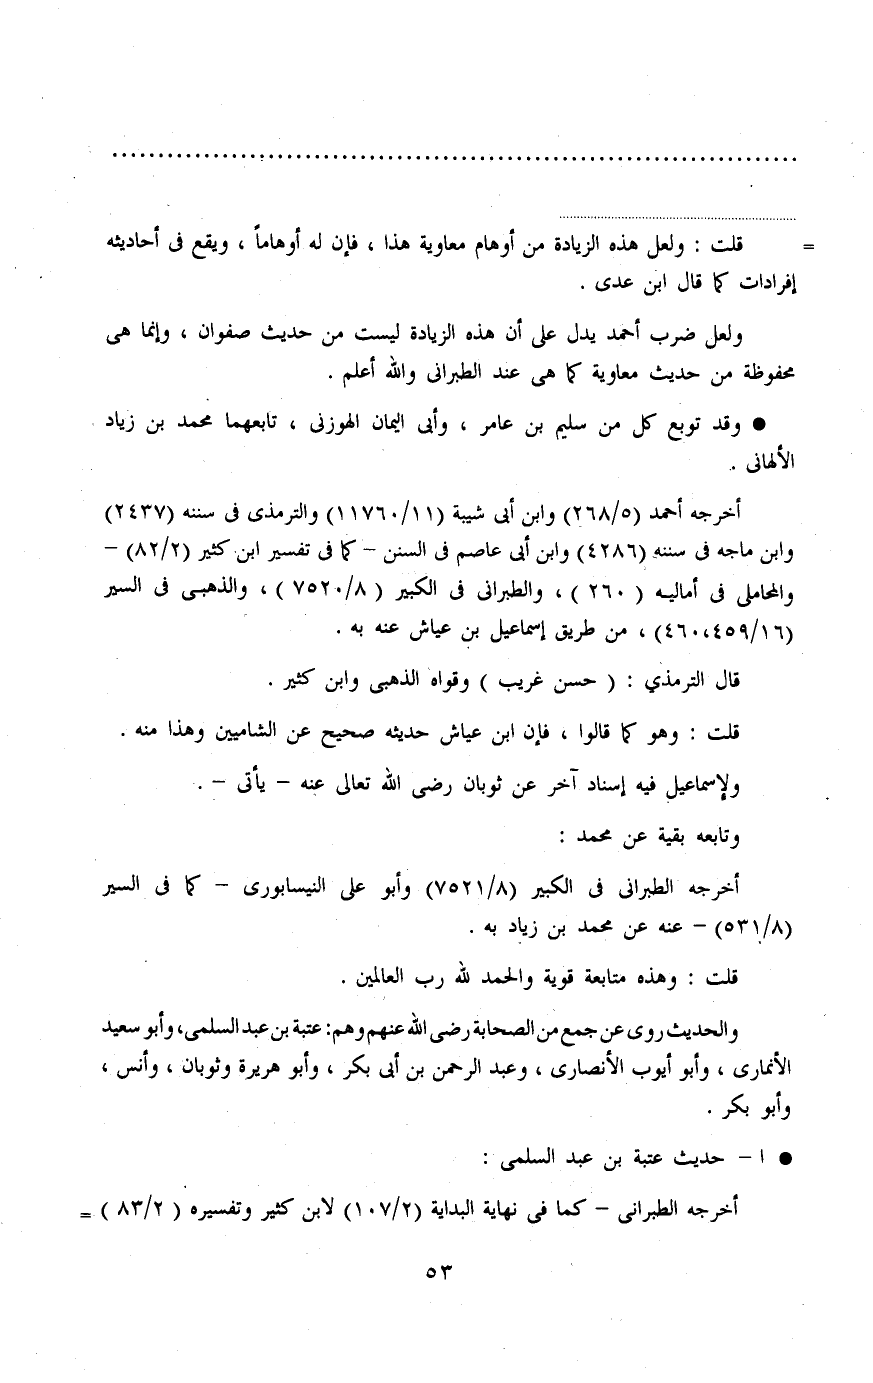 = قلت : ولعل هذه الزيادة من أوهام معاوية هذا ، فإن له أوهاماً ، ويقع فى أحاديثه
إفرادات كما قال ابن عدى .
ولعل ضرب أحمد يدل على أن هذه الزيادة ليست من حديث صفوان ، وإنما هى
محفوظة من حديث معاوية كما هى عند الطبرانى والله أعلم .
● وقد توبع كل من سليم بن عامر ، وأبى اليمان الهوزنى ، تابعهما محمد بن زياد
الألهانى .
أخرجه أحمد (٢٦٨/٥) وابن أبى شيبة (١١٧٦٠/١١) والترمذى فى سننه (٢٤٣٧)
وابن ماجه فى سننه (٤٢٨٦) وابن أبى عاصم فى السنن – كما فى تفسير ابن كثير (٨٢/٢) –
والمحاملى فى أماليه ( ٢٦٠ ) ، والطبرانى فى الكبير ( ٧٥٢٠/٨ ) ، والذهبى فى السير
(٤٦٠،٤٥٩/١٦) ، من طريق إسماعيل بن عياش عنه به .
قال الترمذي : ( حسن غريب ) وقواه الذهبى وابن كثير .
قلت : وهو كما قالوا ، فإن ابن عياش حديثه صحيح عن الشاميين وهذا منه .
ولإسماعيل فيه إسناد آخر عن ثوبان رضى الله تعالى عنه – يأتى – .
وتابعه بقية عن محمد :
أخرجه الطبرانى فى الكبير (٧٥٢١/٨) وأبو على النيسابورى – كما فى السير
(٥٣١/٨) – عنه عن محمد بن زياد به .
قلت : وهذه متابعة قوية والحمد لله رب العالمين .
والحديث روى عن جمع من الصحابة رضى الله عنهم وهم : عتبة بن عبد السلمى، وأبو سعيد
الأنمارى ، وأبو أيوب الأنصارى ، وعبد الرحمن بن أبى بكر ، وأبو هريرة وثوبان ، وأنس ،
وأبو بكر .
● ١ – حديث عتبة بن عبد السلمى :
أخرجه الطبرانى – كما فى نهاية البداية (١٠٧/٢) لابن كثير وتفسيره ( ٨٣/٢ ) =
٥٣